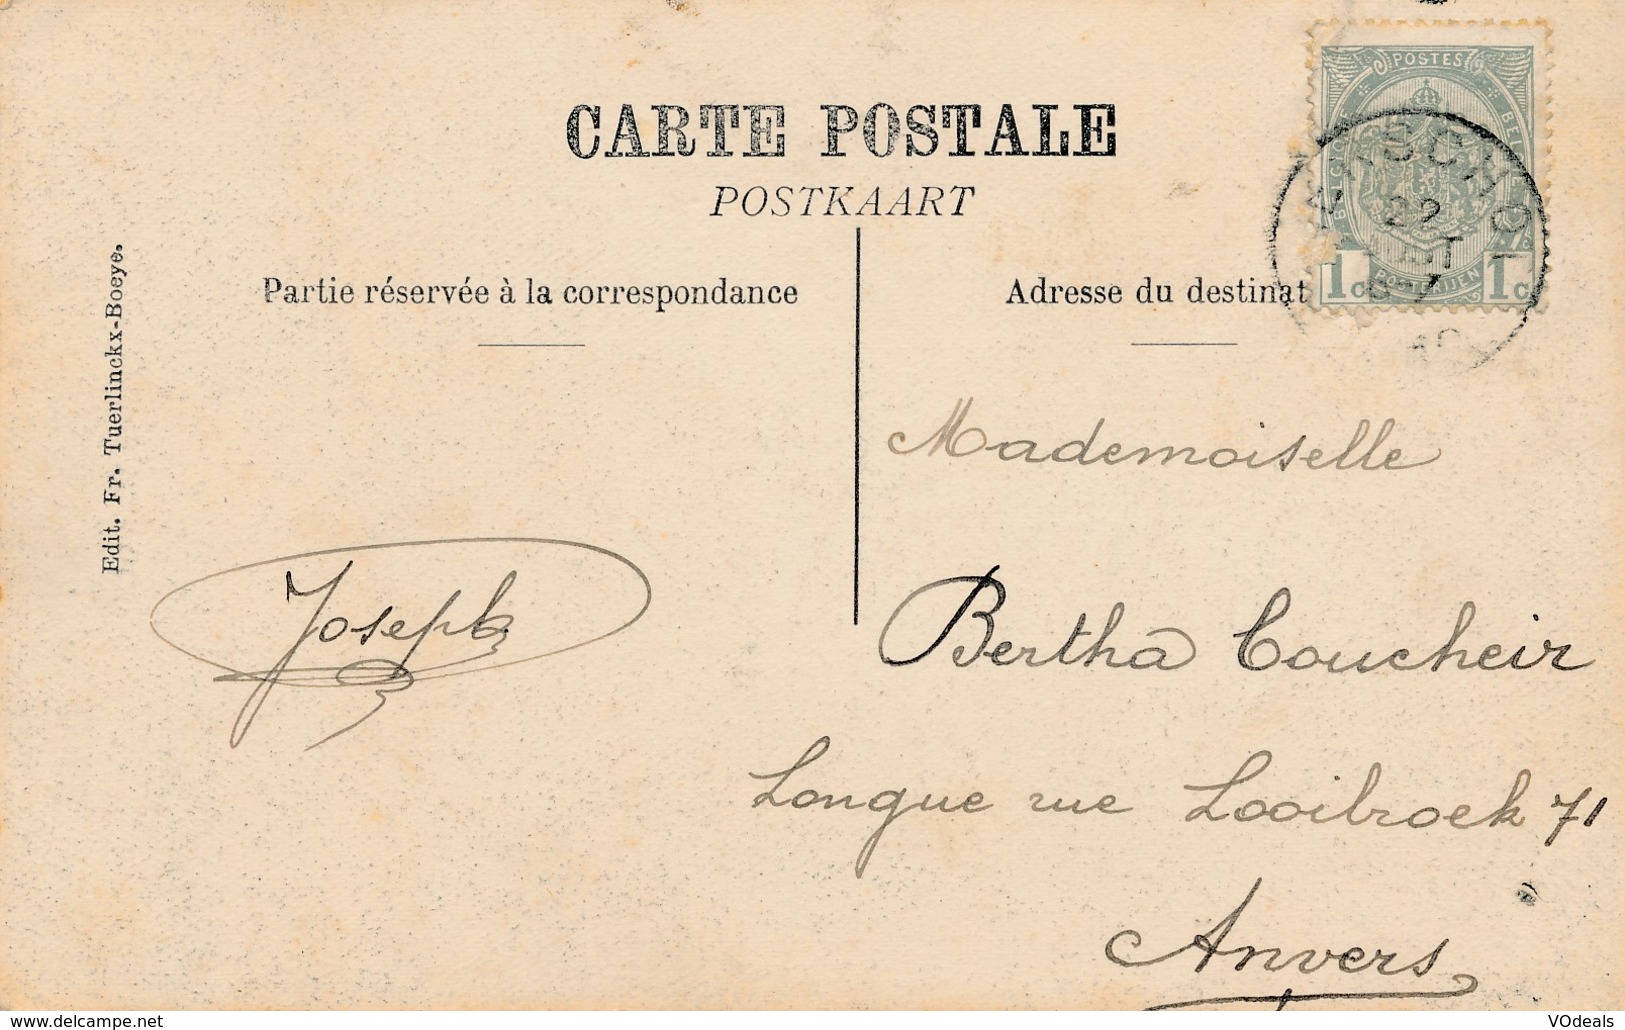 CARTE POSTALE
POSTKAART
Partie réservée à la correspondance
Adresse du destinat
Edit. Fr. Tuerlinckx-Boeye.
POSTES
1c POSTERIJEN 1c
22
Mademoiselle
Joseph
Bertha Coucheir
Longue rue Looibroek 71
Anvers
www.delcampe.net
VOdeals